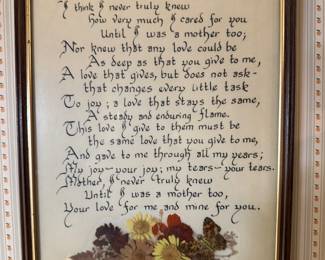 I think I never truly knew
how very much I cared for you
Until I was a mother too;
Nor knew that any love could be
As deep as that you give to me,
A love that gives, but does not ask-
that changes every little task
To joy; a love that stays the same,
A steady and enduring flame.
This love I give to them must be
the same love that you give to me,
And gave to me through all my years;
My joy-your joy; my tears-your tears.
Mother I never truly knew
Until I was a mother too,
Your love for me and mine for you.